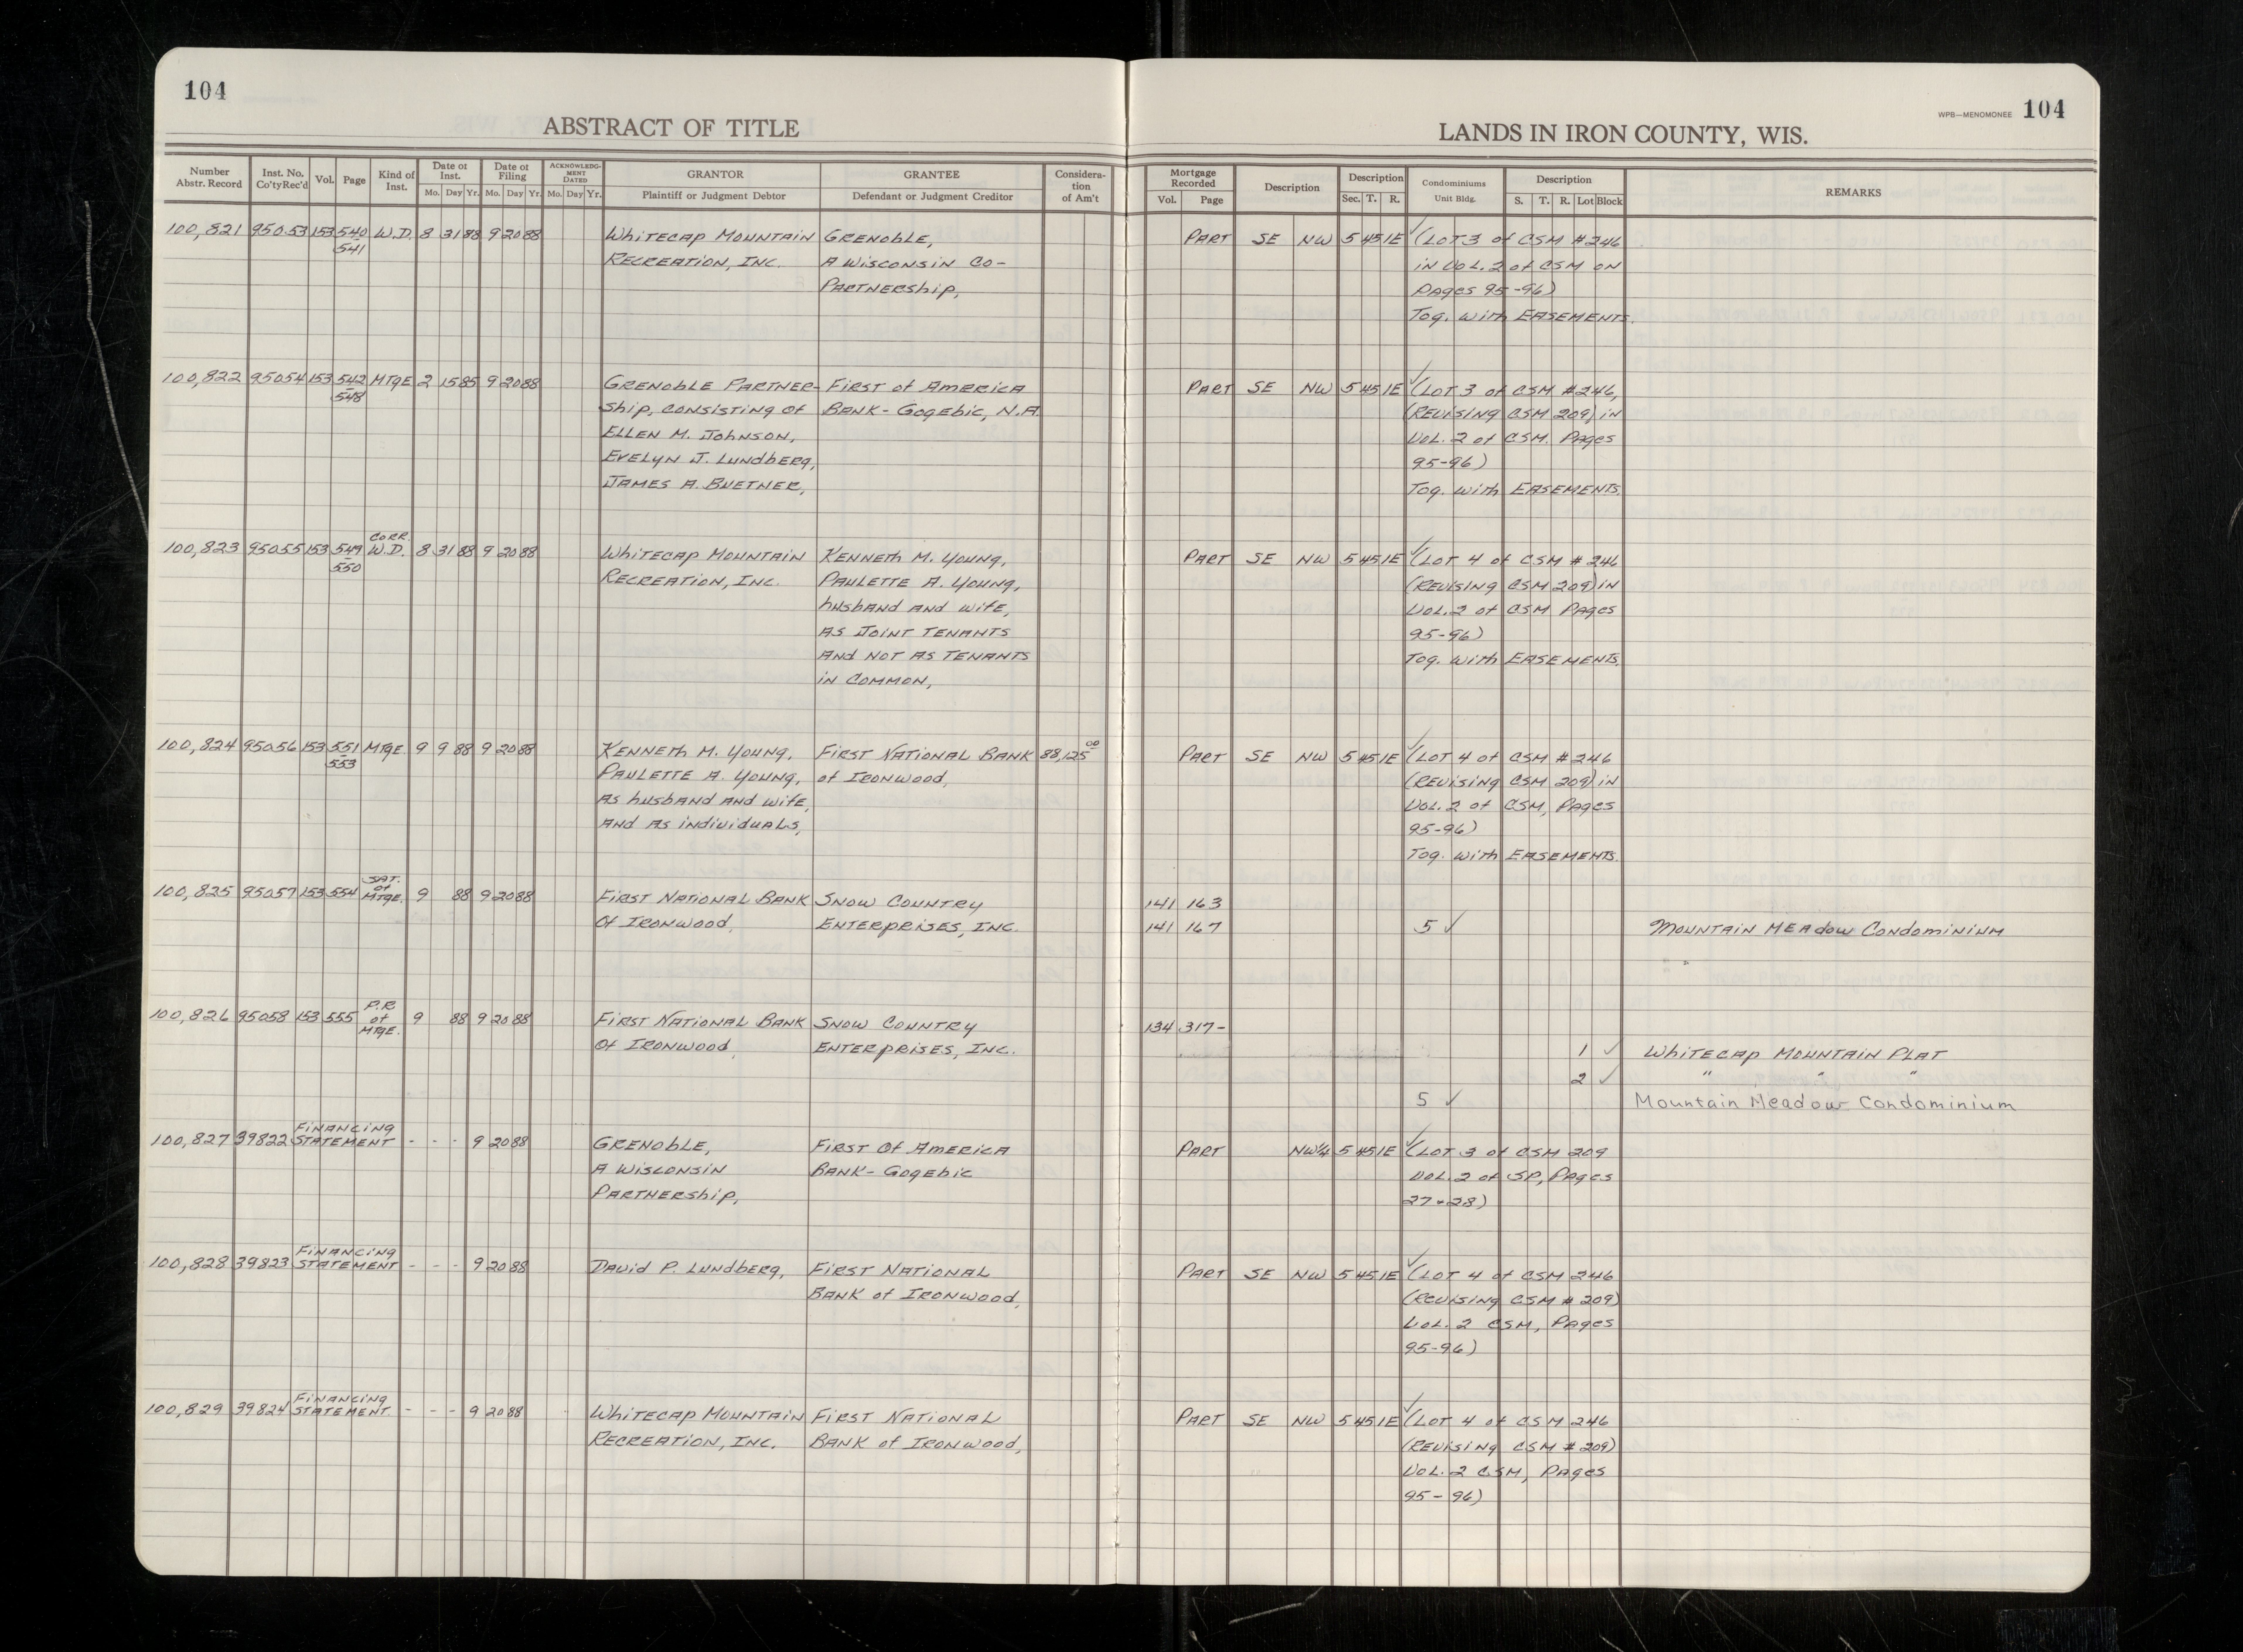 104
ABSTRACT OF TITLE
LANDS IN IRON COUNTY, WIS.
WPB—MENOMONEE 104
Number Abstr. Record | Inst. No. Co'ty Rec'd | Vol. | Page | Kind of Inst. | Date of Inst. Mo. Day Yr. | Date of Filing Mo. Day Yr. | ACKNOWLEDGMENT DATED Mo. Day Yr. | GRANTOR Plaintiff or Judgment Debtor | GRANTEE Defendant or Judgment Creditor | Consideration of Am't | Mortgage Recorded Vol. Page | Description | Description Sec. T. R. | Condominiums Unit Bldg. | Description S. T. R. Lot Block | REMARKS
100,821 95053 153 540 W.D. 8 31 88 9 20 88 Whitecap Mountain Grenoble, Part SE NW 5 45 1E ✓ (Lot 3 of CSM #246
541 Recreation, Inc. A Wisconsin Co- in Vol. 2 of CSM on
Partnership, Pages 95-96)
Tog. with Easements.
100,822 95054 153 542 Mtge 2 15 85 9 20 88 Grenoble Partner- First of America Part SE NW 5 45 1E ✓ (Lot 3 of CSM #246,
548 ship, consisting of Bank-Gogebic, N.A. (Revising CSM 209) in
Ellen M. Johnson, Vol. 2 of CSM. Pages
Evelyn J. Lundberg, 95-96)
James A. Buetner, Tog. with Easements.
Corr.
100,823 95055 153 549 W.D. 8 31 88 9 20 88 Whitecap Mountain Kenneth M. Young, Part SE NW 5 45 1E ✓ (Lot 4 of CSM #246
550 Recreation, Inc. Paulette A. Young, (Revising CSM 209) in
husband and wife, Vol. 2 of CSM Pages
as Joint Tenants 95-96)
and not as Tenants Tog. with Easements.
in Common,
100,824 95056 153 551 Mtge 9 9 88 9 20 88 Kenneth M. Young, First National Bank 88,125 00 Part SE NW 5 45 1E ✓ (Lot 4 of CSM #246
553 Paulette A. Young, of Ironwood, (Revising CSM 209) in
as husband and wife, Vol. 2 of CSM, Pages
and as individuals, 95-96)
Tog. with Easements.
Sat. of
100,825 95057 153 554 Mtge. 9 88 9 20 88 First National Bank Snow Country 141 163
Of Ironwood, Enterprises, Inc. 141 167 5 ✓ Mountain Meadow Condominium
P.R. of
100,826 95058 153 555 Mtge. 9 88 9 20 88 First National Bank Snow Country 134 317-
Of Ironwood, Enterprises, Inc. 1 ✓ Whitecap Mountain Plat
2 ✓ " " "
5 ✓ Mountain Meadow Condominium
Financing
100,827 39822 Statement - - - 9 20 88 Grenoble, First Of America Part NW¼ 5 45 1E ✓ (Lot 3 of CSM 209
A Wisconsin Bank-Gogebic Vol. 2 of SP, Pages
Partnership, 27+28)
Financing
100,828 39823 Statement - - - 9 20 88 David P. Lundberg, First National Part SE NW 5 45 1E ✓ (Lot 4 of CSM 246
Bank of Ironwood, (Revising CSM #209)
Vol. 2 CSM, Pages
95-96)
Financing
100,829 39824 Statement - - - 9 20 88 Whitecap Mountain First National Part SE NW 5 45 1E ✓ (Lot 4 of CSM 246
Recreation, Inc. Bank of Ironwood, (Revising CSM #209)
Vol. 2 CSM, Pages
95-96)